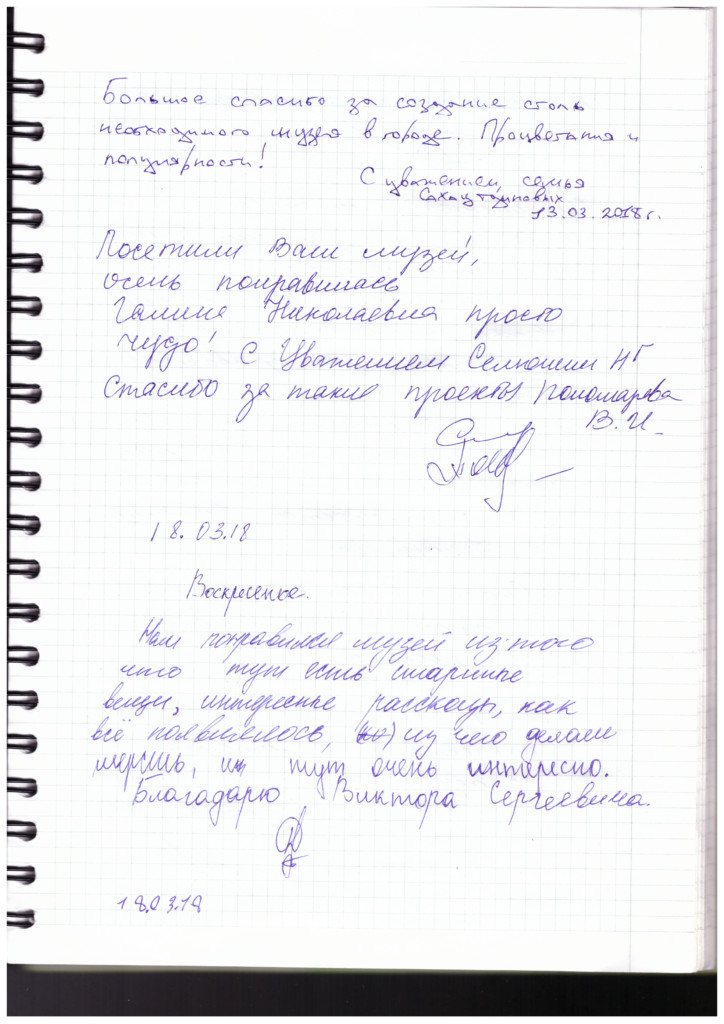 Большое спасибо за создание столь
необходимого музея в городе. Процветания и
популярности!
С уважением, семья
13.03.2018г.
Посетили Ваш музей,
очень понравилось
Галина Николаевна просто
чудо! С Уважением НГ
Спасибо за такие проекты Пономарева
В.И.
18.03.18
Воскресенье.
Нам понравился музей из-того
что тут есть старинные
вещи, интересные рассказы, как
всё появилось, из чего делали
шерсть, и тут очень интересно.
Благодарю Виктора Сергеевича.
18.03.18